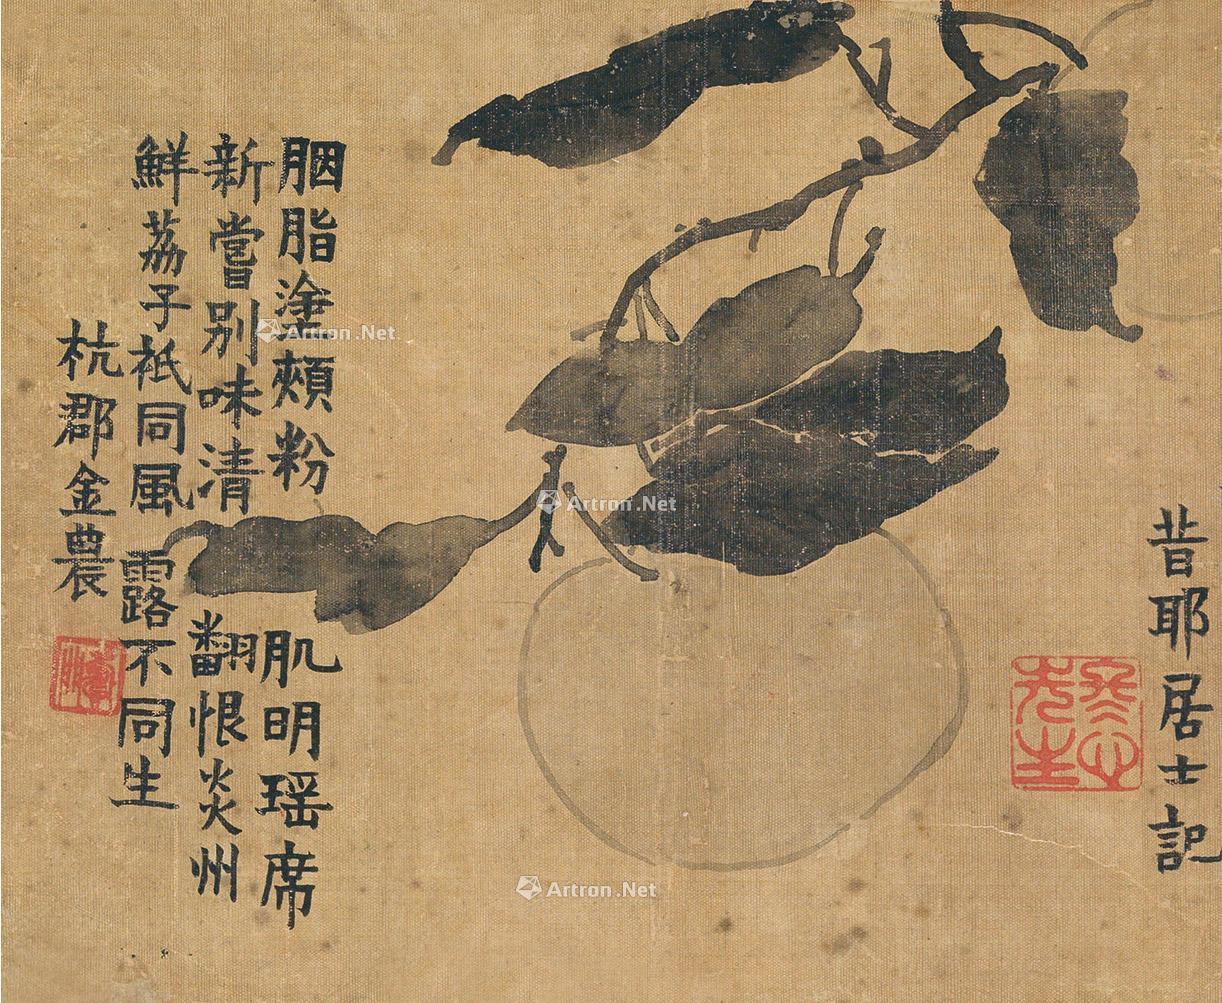 昔耶居士記
冬心先生
胭脂塗頰粉肌明瑶席
新嘗别味清翻恨炎州
鮮荔子祗同風露不同生
杭郡金農
Artron.Net
Artron.Net
Artron.Net